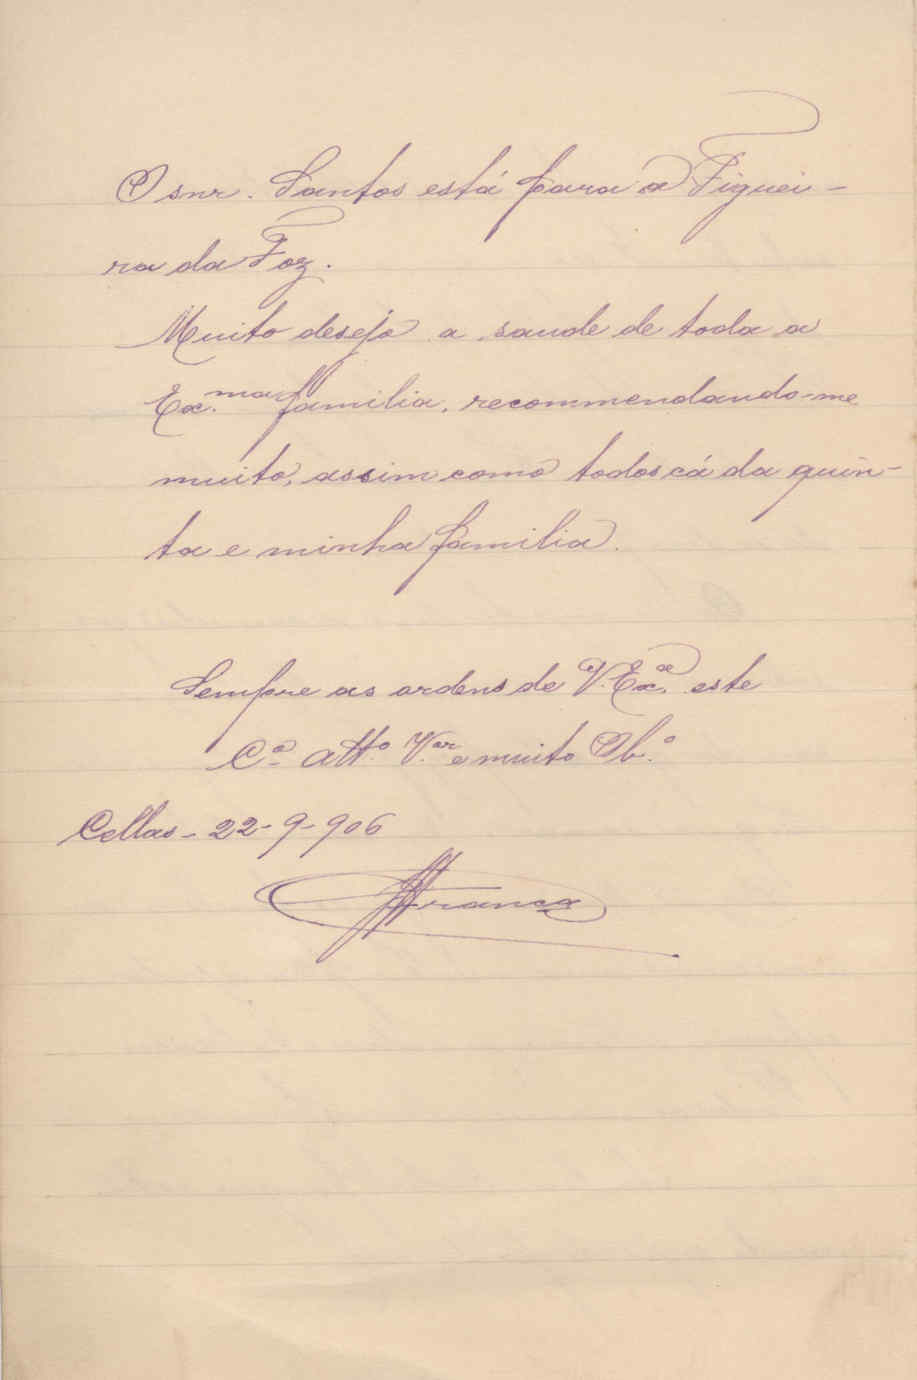 O snr. Santos está para a Figuei-
ra da Foz.
Muito desejo a saude de toda a
Ex.ma familia, recommendando-me
muito, assim como todos cá da quin-
ta e minha familia.
Sempre as ordens de V. Ex.ª este
C.º att.º V.or e muito Ob.º
Cellas - 22-9-906
França